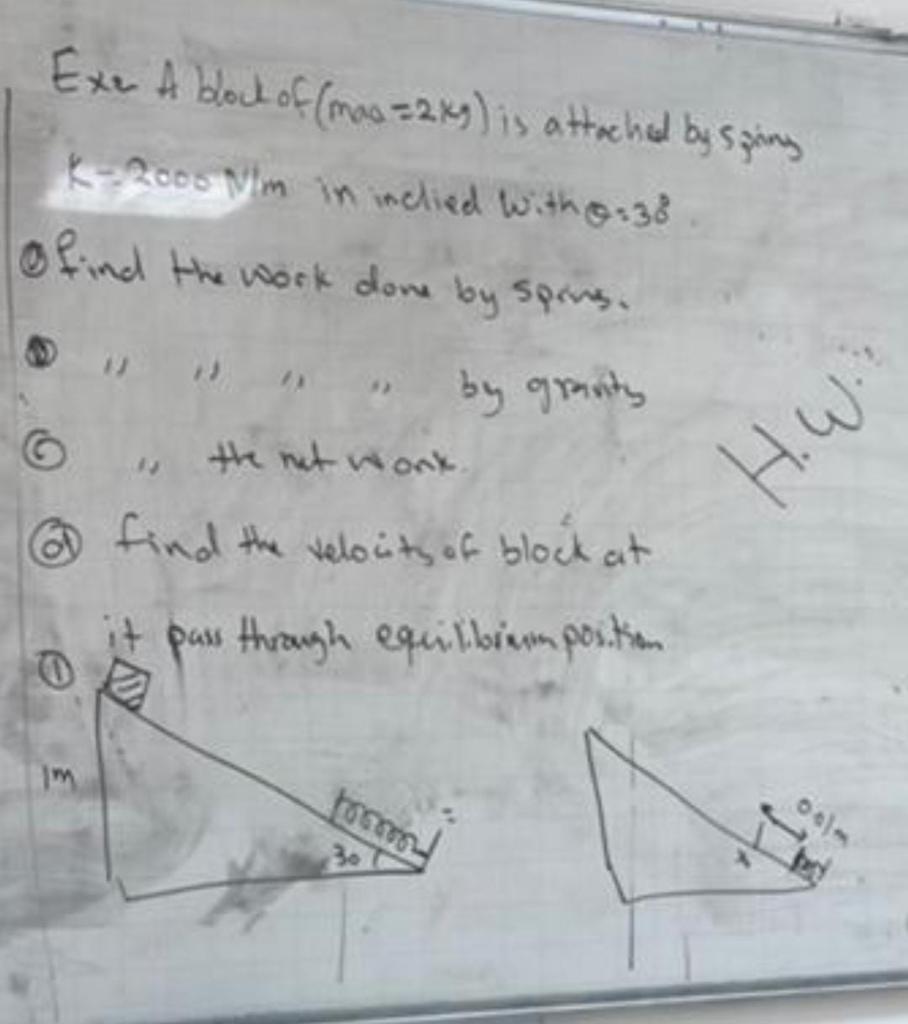 Exe A block of (mass=2kg) is attached by spring
K=2000 N/m in inclied with θ=30
find the work done by spring.
" " " " by gravity
C " the net work.
d find the velocity of block at
it pass through equilibrium position
H.W.
1
1m
30
x